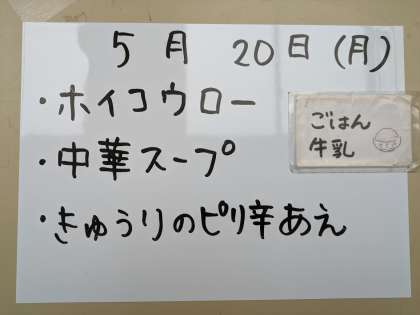 5月 20日(月)
・ホイコウロー
ごはん
牛乳
・中華スープ
・きゅうりのピリ辛あえ